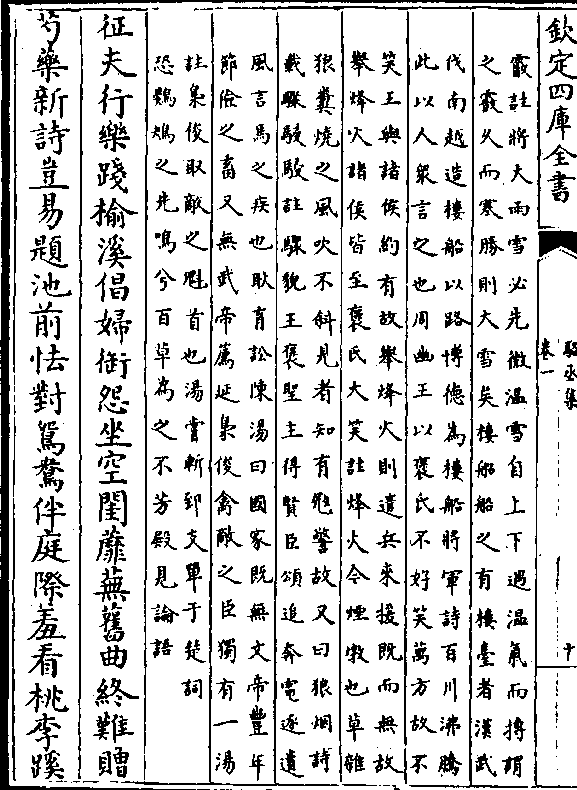 欽定四庫全書
駱丞集
卷一
十
霰註將大雨雪必先微温雪自上下遇温氣而摶謂
之霰久而寒勝則大雪矣樓船船之有樓臺者漢武
伐南越造樓船以路博德為樓船將軍詩百川沸騰
此以人衆言之也周幽王以褒氏不好笑萬方故不
笑王與諸侯約有故舉烽火則遣兵來援既而無故
舉烽火諸侯皆至褒氏大笑註烽火令煙墩也草雜
狼糞燒之風吹不斜見者知有兇警故又曰狼烟詩
載驟駸駸註驟貌王褒聖主得賢臣頌追奔電逐遺
風言馬之疾也耿育訟陳湯曰國家既無文帝豐年
節儉之畜又無武帝薦延梟俊禽敵之臣獨有一湯
註梟俊取敵之魁首也湯嘗斬郅支單于楚詞
恐鵜鴂之先鳴兮百草為之不芳殿見論語
征夫行樂踐榆溪倡婦銜怨坐空閨蘼蕪舊曲終難贈
芍藥新詩豈易題池前怯對鴛鴦伴庭際羞看桃李蹊